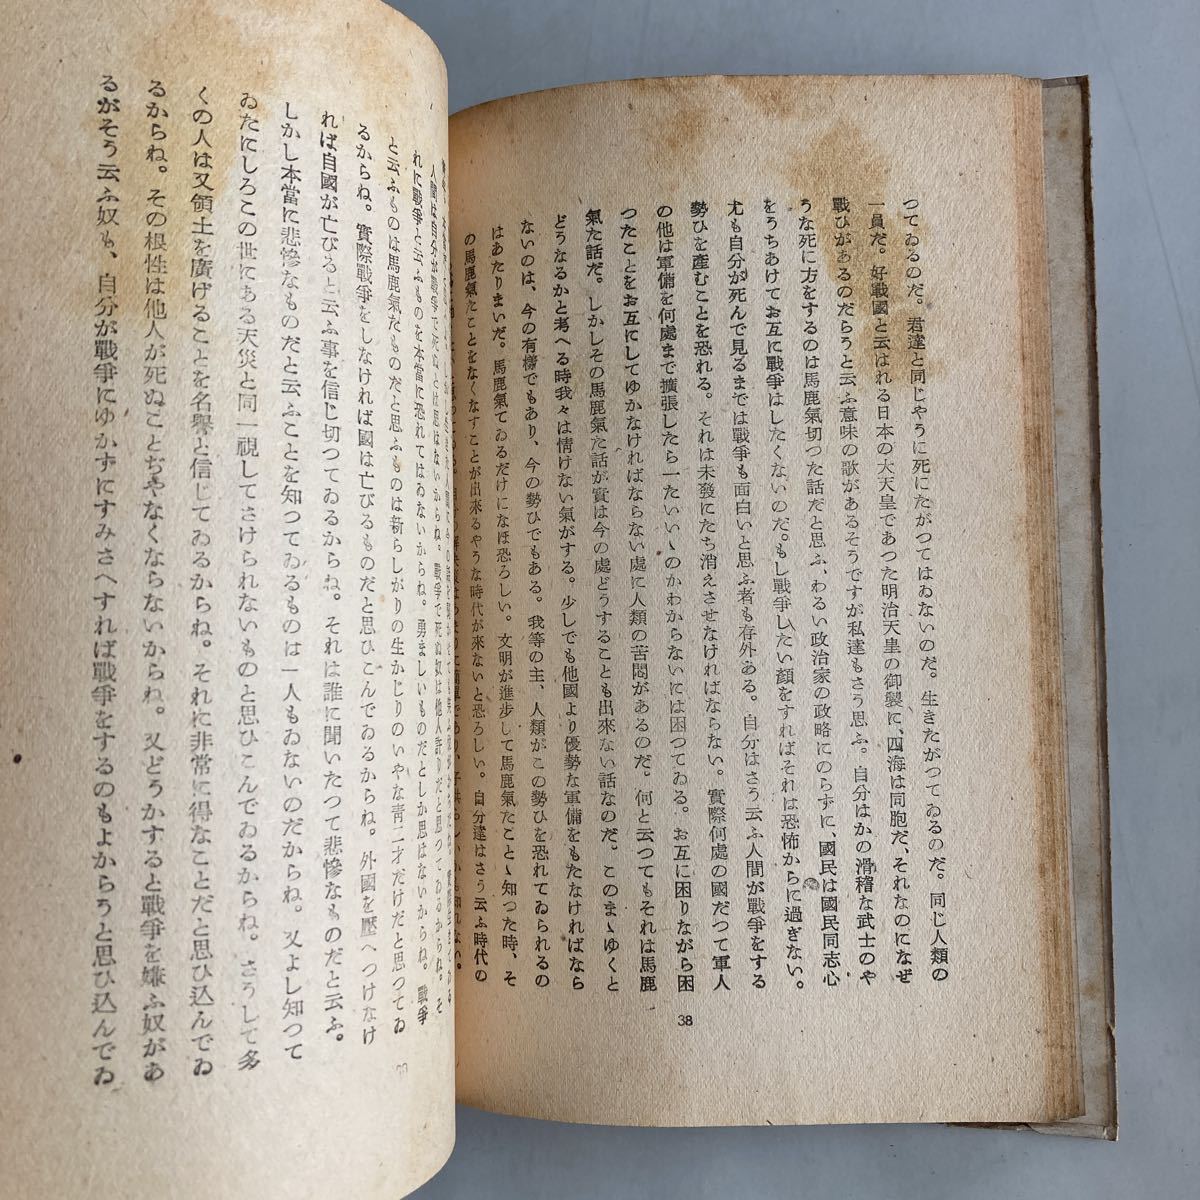 つてゐるのだ。君達と同じやうに死にたがつてはゐないのだ。生きたがつてゐるのだ。同じ人類の
一員だ。好戰國と云はれる日本の大天皇であつた明治天皇の御製に、四海は同胞だ、それなのになぜ
戰ひがあるのだらうと云ふ意味の歌があるそうですが私達もさう思ふ。自分はかの滑稽な武士のや
うな死に方をするのは馬鹿氣切つた話だと思ふ、わるい政治家の政略にのらずに、國民は國民同志心
をうちあけてお互に戰爭はしたくないのだ。もし戰爭したい顏をすればそれは恐怖からに過ぎない。
尤も自分が死んで見るまでは戰爭も面白いと思ふ者も存外ある。自分はさう云ふ人間が戰爭をする
勢ひを產むことを恐れる。それは未發にたち消えさせなければならない。實際何處の國だつて軍人
の他は軍備を何處まで擴張したら一たいいゝのかわからないには困つてゐる。お互に困りながら困
つたことをお互にしてゆかなければならない處に人類の苦悶があるのだ。何と云つてもそれは馬鹿
氣た話だ。しかしその馬鹿氣た話が實は今の處どうすることも出來ない話なのだ。このまゝゆくと
どうなるかと考へる時我々は情けない氣がする。少しでも他國より優勢な軍備をもたなければなら
ないのは、今の有樣でもあり、今の勢ひでもある。我等の主、人類がこの勢ひを恐れてゐられるの
はあたりまいだ。馬鹿氣てゐるだけになほ恐ろしい。文明が進步して馬鹿氣たことゝ知つた時、そ
の馬鹿氣たことをなくなすことが出來るやうな時代が來ないと恐ろしい。自分達はさう云ふ時代の
38
人間は自分が戰爭で死ぬとは思はないからね。戰爭で死ぬ奴は他人許りだと思つてゐるからね。そ
れに戰爭と云ふものを本當に恐れてはゐないからね。勇ましいものだとしか思はないからね。戰爭
と云ふものは馬鹿氣たものだと思ふものは新らしがりの生かじりのいやな靑二才だけだと思つてゐ
るからね。實際戰爭をしなければ國は亡びるものだと思ひこんでゐるからね。外國を壓へつけなけ
れば自國が亡びると云ふ事を信じ切つてゐるからね。それは誰に聞いたつて悲慘なものだと云ふ。
しかし本當に悲慘なものだと云ふことを知つてゐるものは一人もゐないのだからね。又よし知つて
ゐたにしろこの世にある天災と同一視してさけられないものと思ひこんでゐるからね。さうして多
くの人は又領土を廣げることを名譽と信じてゐるからね。それに非常に得なことだと思ひ込んでゐ
るからね。その根性は他人が死ぬことぢやなくならないからね。又どうかすると戰爭を嫌ふ奴があ
るがそう云ふ奴も、自分が戰爭にゆかずにすみさへすれば戰爭をするのもよからうと思ひ込んでゐ